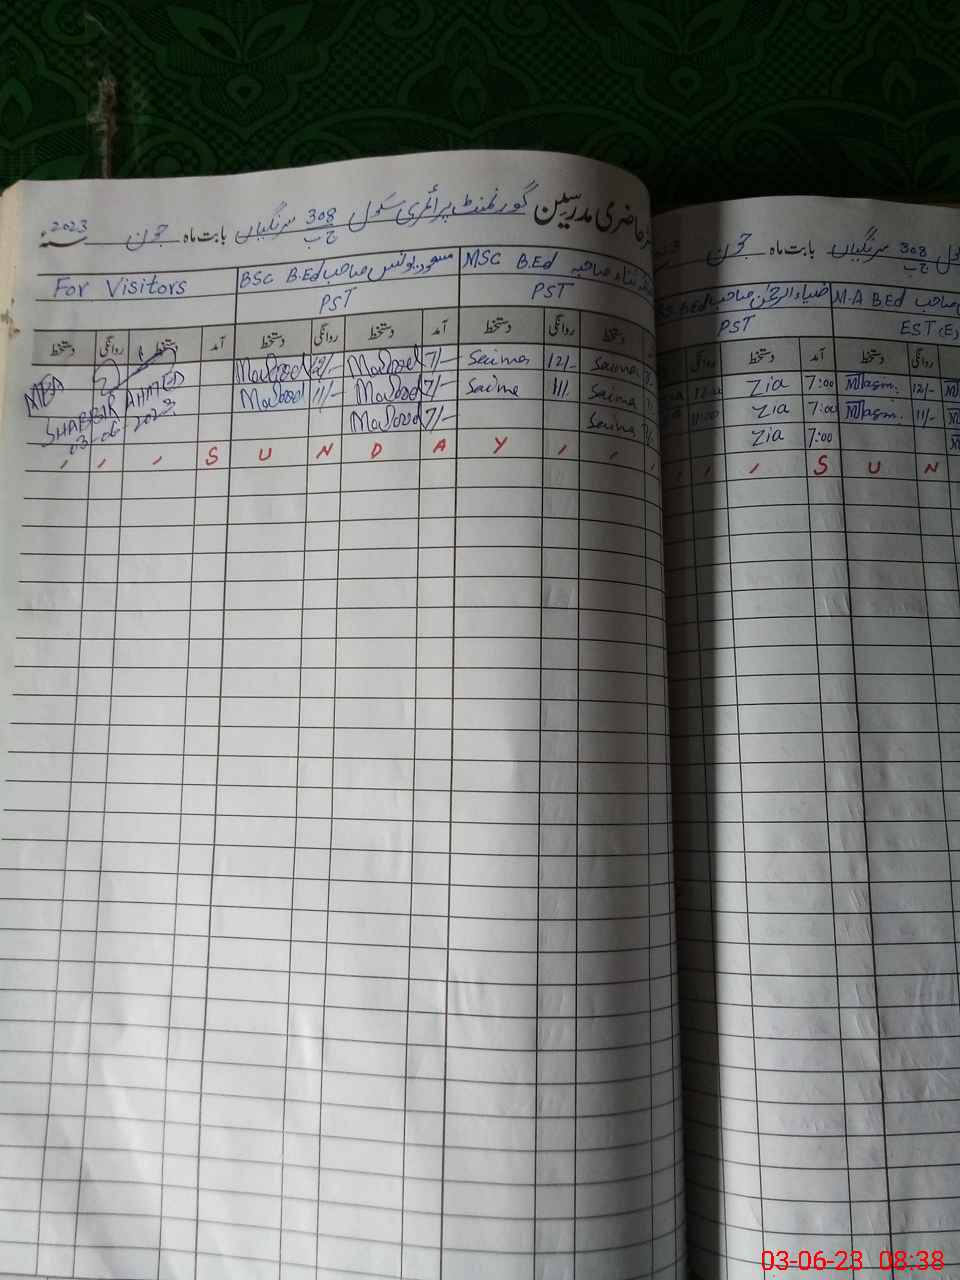 حاضری مدرسین گورنمنٹ پرائمری سکول 308 ج ب سرنگیاں بابت ماہ جون 2023
For Visitors
BSC B.Ed مسعود یونس صاحب
MSC B.Ed
PST
PST
دستخط روانگی دستخط آمد دستخط روانگی دستخط آمد دستخط روانگی دستخط
Masood 12/- Masood 7/- Saima 12/- Saima
MEA
Masood 11/- Masood 7/- Saima 11/- Saima
SHABBIR AHMED
Masood 7/- Saima
03-06-2023
, , , S U N D A Y , , ,
308 ج ب سرنگیاں بابت ماہ جون
B.Ed ضیاء الرحمن صاحب
M.A B.Ed صاحب
PST
EST (E)
روانگی دستخط آمد دستخط روانگی
Zia 7:00 12/-
11:00 Zia 7:00 11/-
Zia 7:00
, , , S U N
03-06-23 08:38